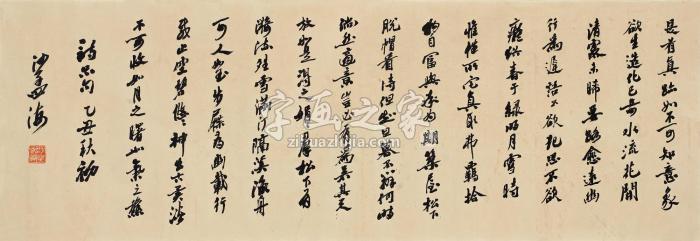 是有真跡如不可知意象
欲生造化已奇水流花開
清露未晞要路愈遠幽
行為遲語不欲犯思不欲
癡猶春于綠明月雪時
惟性所宅真取弗羈拾
物自富與率為期築屋松下
脫帽看詩但知旦暮不辨何時
倘然適意豈必有為若其天
放如是得之娟娟群松下有
漪流晴雪滿汀隔溪漁舟
可人如玉步屧尋幽載行
載止空碧悠悠神出古異淡
不可收如月之曙如氣之秋
詩品句 乙丑秋初
沙孟海
字画之家